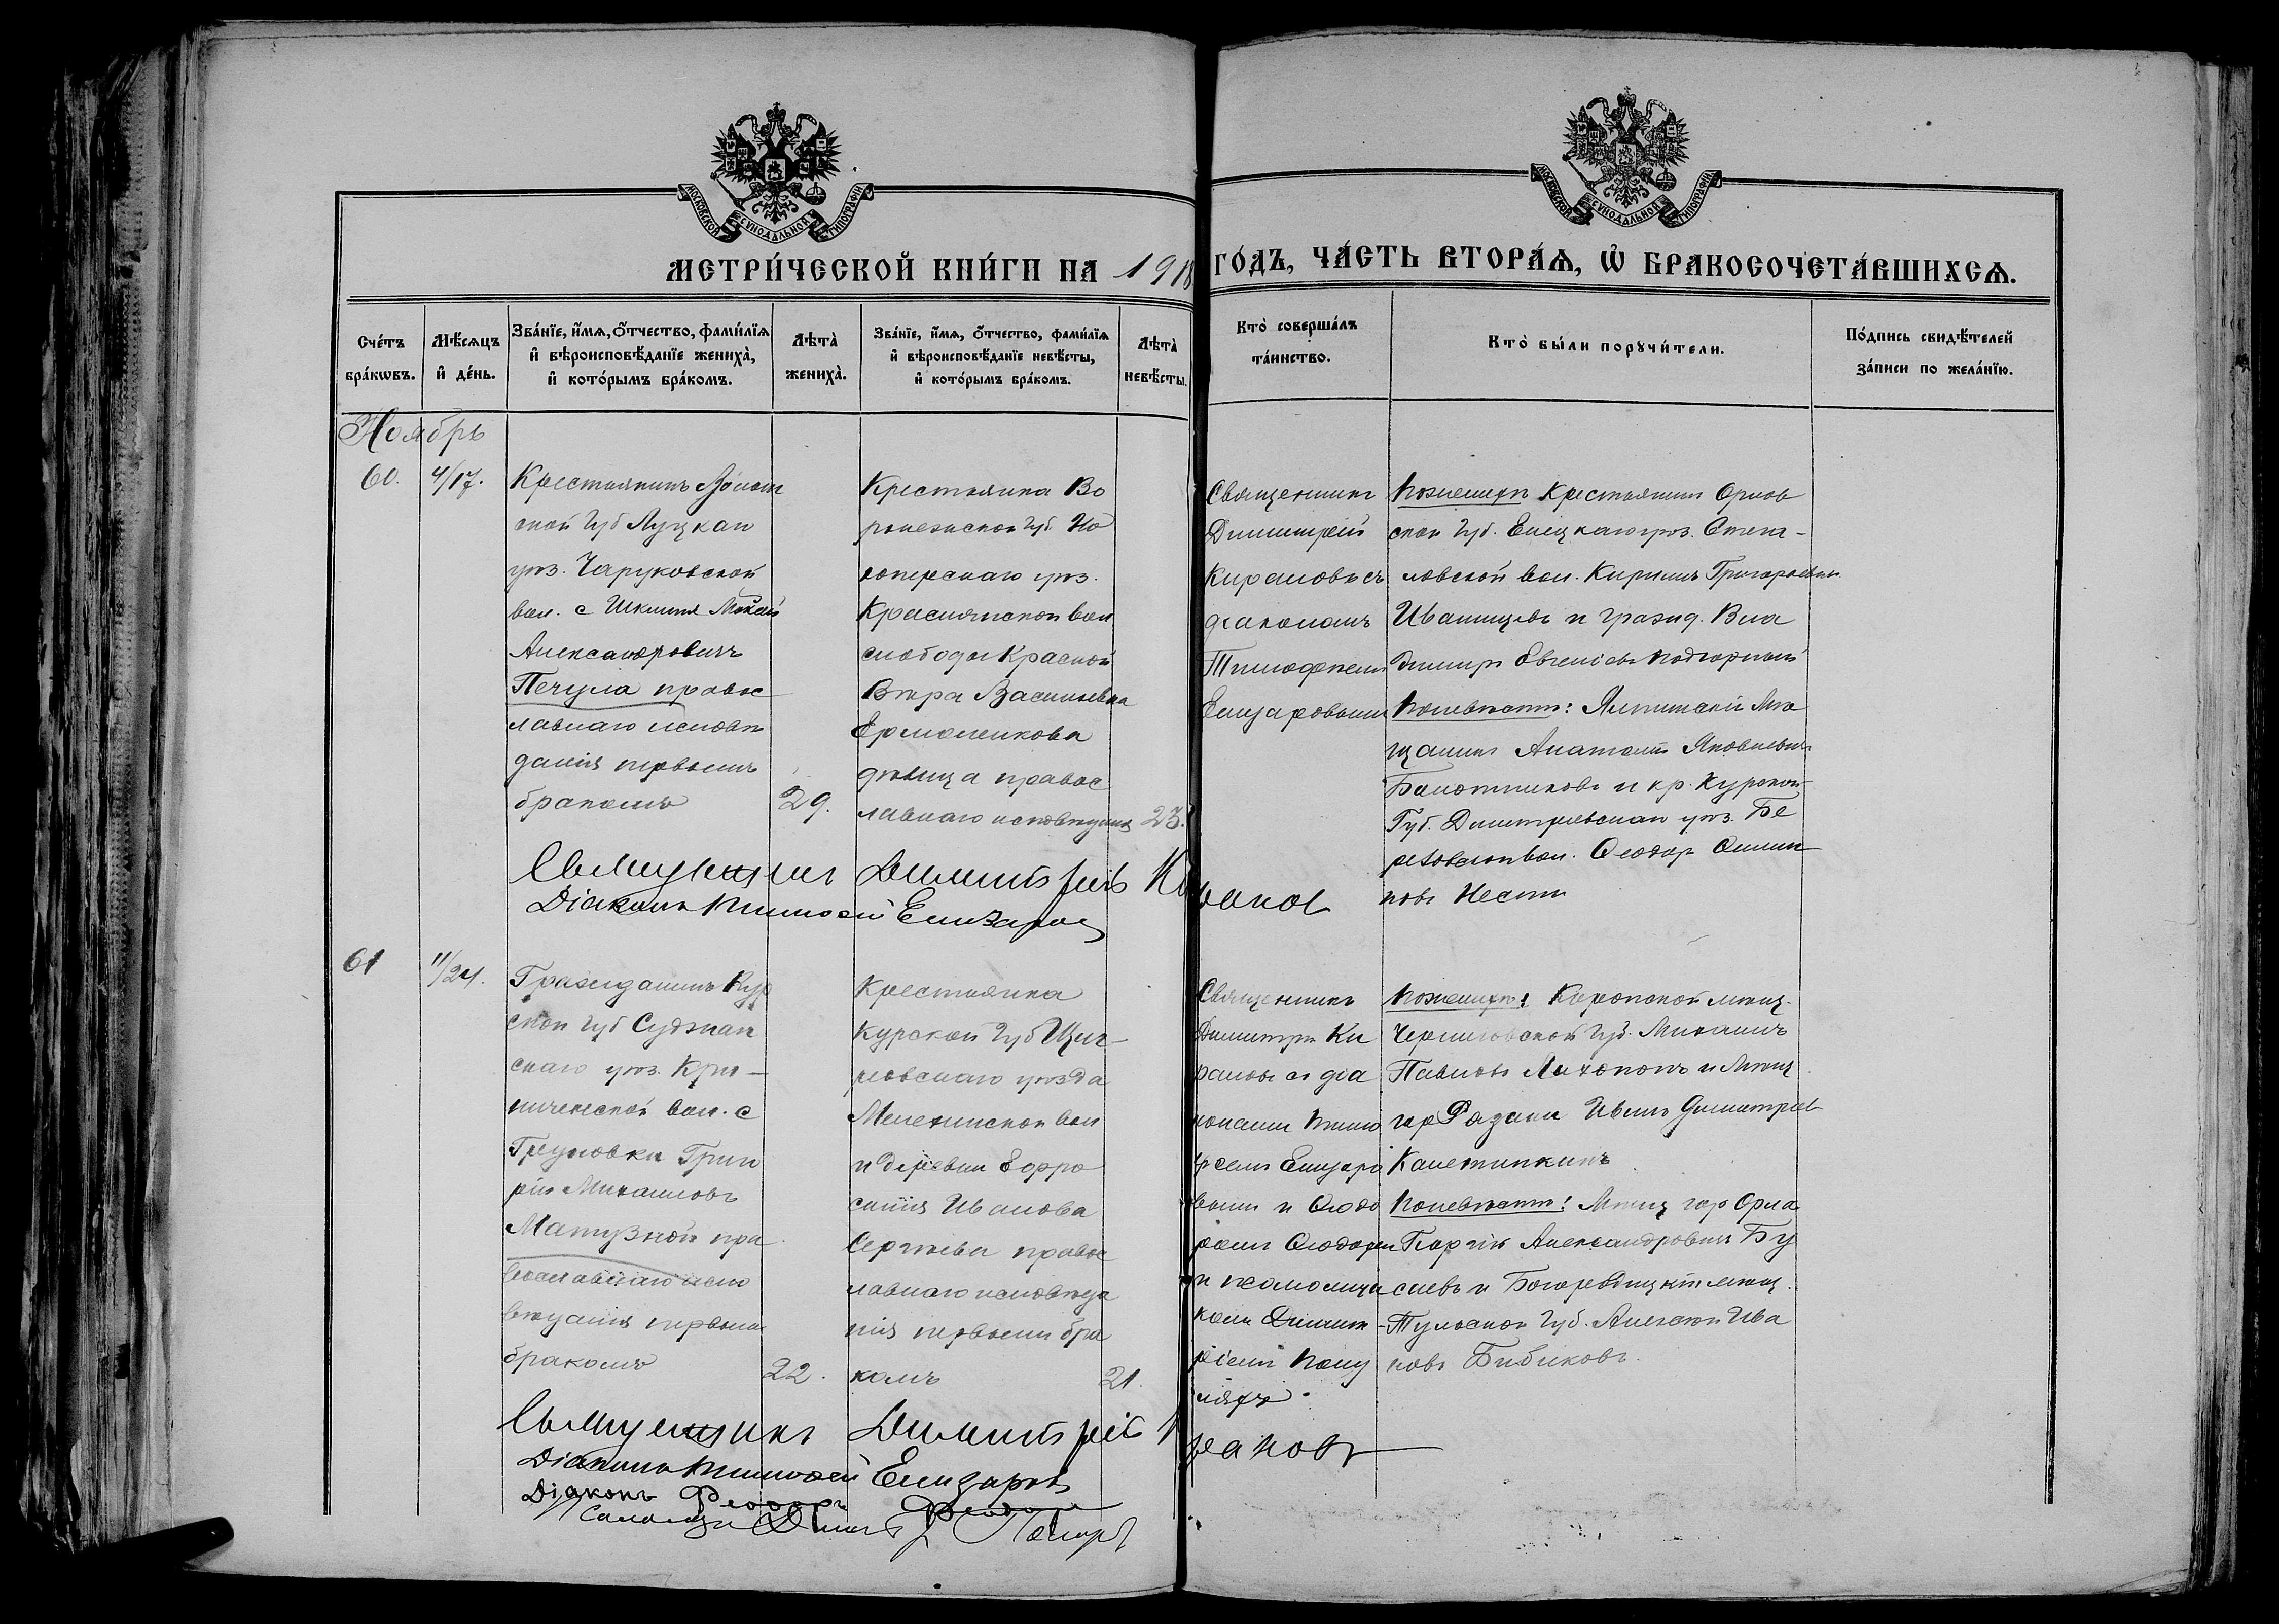 МОСКОВСКОЙ СѴНОДАЛЬНОЙ ТИПОГРАФІИ
МОСКОВСКОЙ СѴНОДАЛЬНОЙ ТИПОГРАФІИ
МЕТРИ́ЧЕСКОЙ КНИ́ГИ НА 1918 ГО́ДЪ, ЧА́СТЬ ВТОРА́Ѧ, Ѡ҆ БРАКОСОЧЕТА́ВШИХСѦ.
Сче́тъ бра́кѡвъ.
Мѣ́сяцъ и҆ де́нь.
Зва́нїе, и҆́мѧ, ѻ҆́тчество, фами́лїѧ
и҆ вѣроисповѣ́данїе жениха̀,
и҆ кото́рымъ бра́комъ.
Лѣ́та̀ жениха̀.
Зва́нїе, и҆́мѧ, ѻ҆́тчество, фами́лїѧ
и҆ вѣроисповѣ́данїе невѣ́сты,
и҆ кото́рымъ бра́комъ.
Лѣ́та̀ невѣ́сты.
Кто̀ соверша́лъ
та́инство.
Кто̀ бы́ли порꙋчи́тели.
По́дпись свидѣ́телей
за́писи по жела́нїю.
Ноябрь
60.
4/17.
Крестьянинъ Волын
ской Губ Луцкаго
уѣз. Чаруковской
вол.
Александровичъ
Печула правос
лавнаго исповѣ
данія первымъ
бракомъ
29.
Крестьянка Во
ронежской Губ Но
хоперскаго уѣз.
Краснянской вол
слободы Красной
Вѣра Васильевна
Ермоленкова
дѣвица правос
лавнаго исповѣданія
23.
Священникъ
Димитрій
Кирановъ съ
діакономъ
Тимофеемъ
Елизаровымъ
По женихѣ Крестьянинъ Орлов
ской Губ. Елецкаго уѣз. Стега-
ловской вол. Кириллъ Григорьевичъ
Иванищевъ и гражд. Вла
димиръ Евгеніевъ Подгорный
По невѣстѣ: Ялтинскій Мѣ
щанинъ Анатолій Яковлевичъ
Болотниковъ и кр. Курской
Губ. Дмитріевскаго уѣз. Бе
резовской вол. Ѳеодоръ
Священникъ Димитрій Кирановъ
Діаконъ Тимофей Елизаровъ
61
11/24.
Гражданинъ Кур
ской Губ Суджан
скаго уѣз. Кри-
ниченской вол. с
Григо
рій Михаиловъ
Матузной пра
вославнаго испо
вѣданія первымъ
бракомъ
22.
Крестьянка
Курской Губ Щиг-
ровскаго уѣзда
Мелехинской вол
и деревни Евфро
синія Иванова
Сергѣева правос
лавнаго исповѣда
нія первымъ бра
комъ
21.
Священникъ
Димитрій Ки
рановъ съ діа
кономъ Тимо
феемъ Елизаро
вымъ и Ѳеодо
ромъ
и псаломщи
комъ Димит-
ріемъ
По женихѣ: мѣщ.
Черниговской Губ. Михаилъ
Павловъ и Мѣщ
Иванъ Димитріев
По невѣстѣ: Мѣщ гор Орла
Георгій Александровичъ Бу
саевъ и Богородицкій мѣщ.
Тульской Губ. Алексѣй Ива
новъ Бибиковъ.
Священникъ Димитрій Кирановъ
Діаконъ Тимофей Елизаровъ
Діаконъ Ѳеодоръ